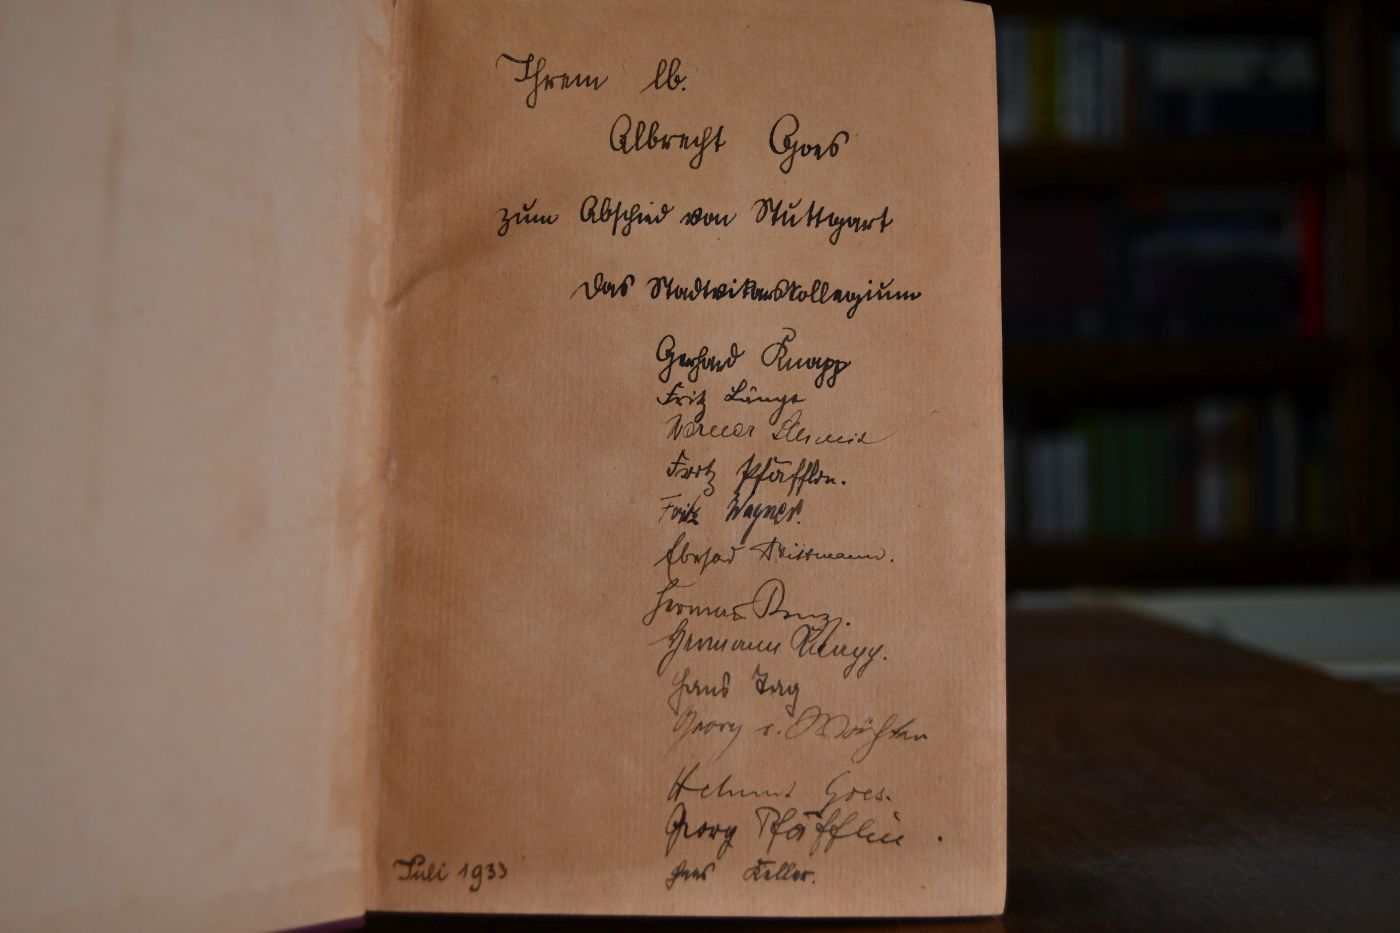 Ihrem lb.
Albrecht Goes
zum Abschied von Stuttgart
Das Stadtvikarskollegium
Gerhard Knapp
Fritz Länge
Werner Schmid
Fritz Pfäfflin.
Fritz Wagner.
Eberhard Wittmann.
Hermann Renz.
Hermann Knapp.
Hans Tag
Georg v. Wächter
Helmut Goes.
Georg Pfäfflin.
Keller.
Juli 1933